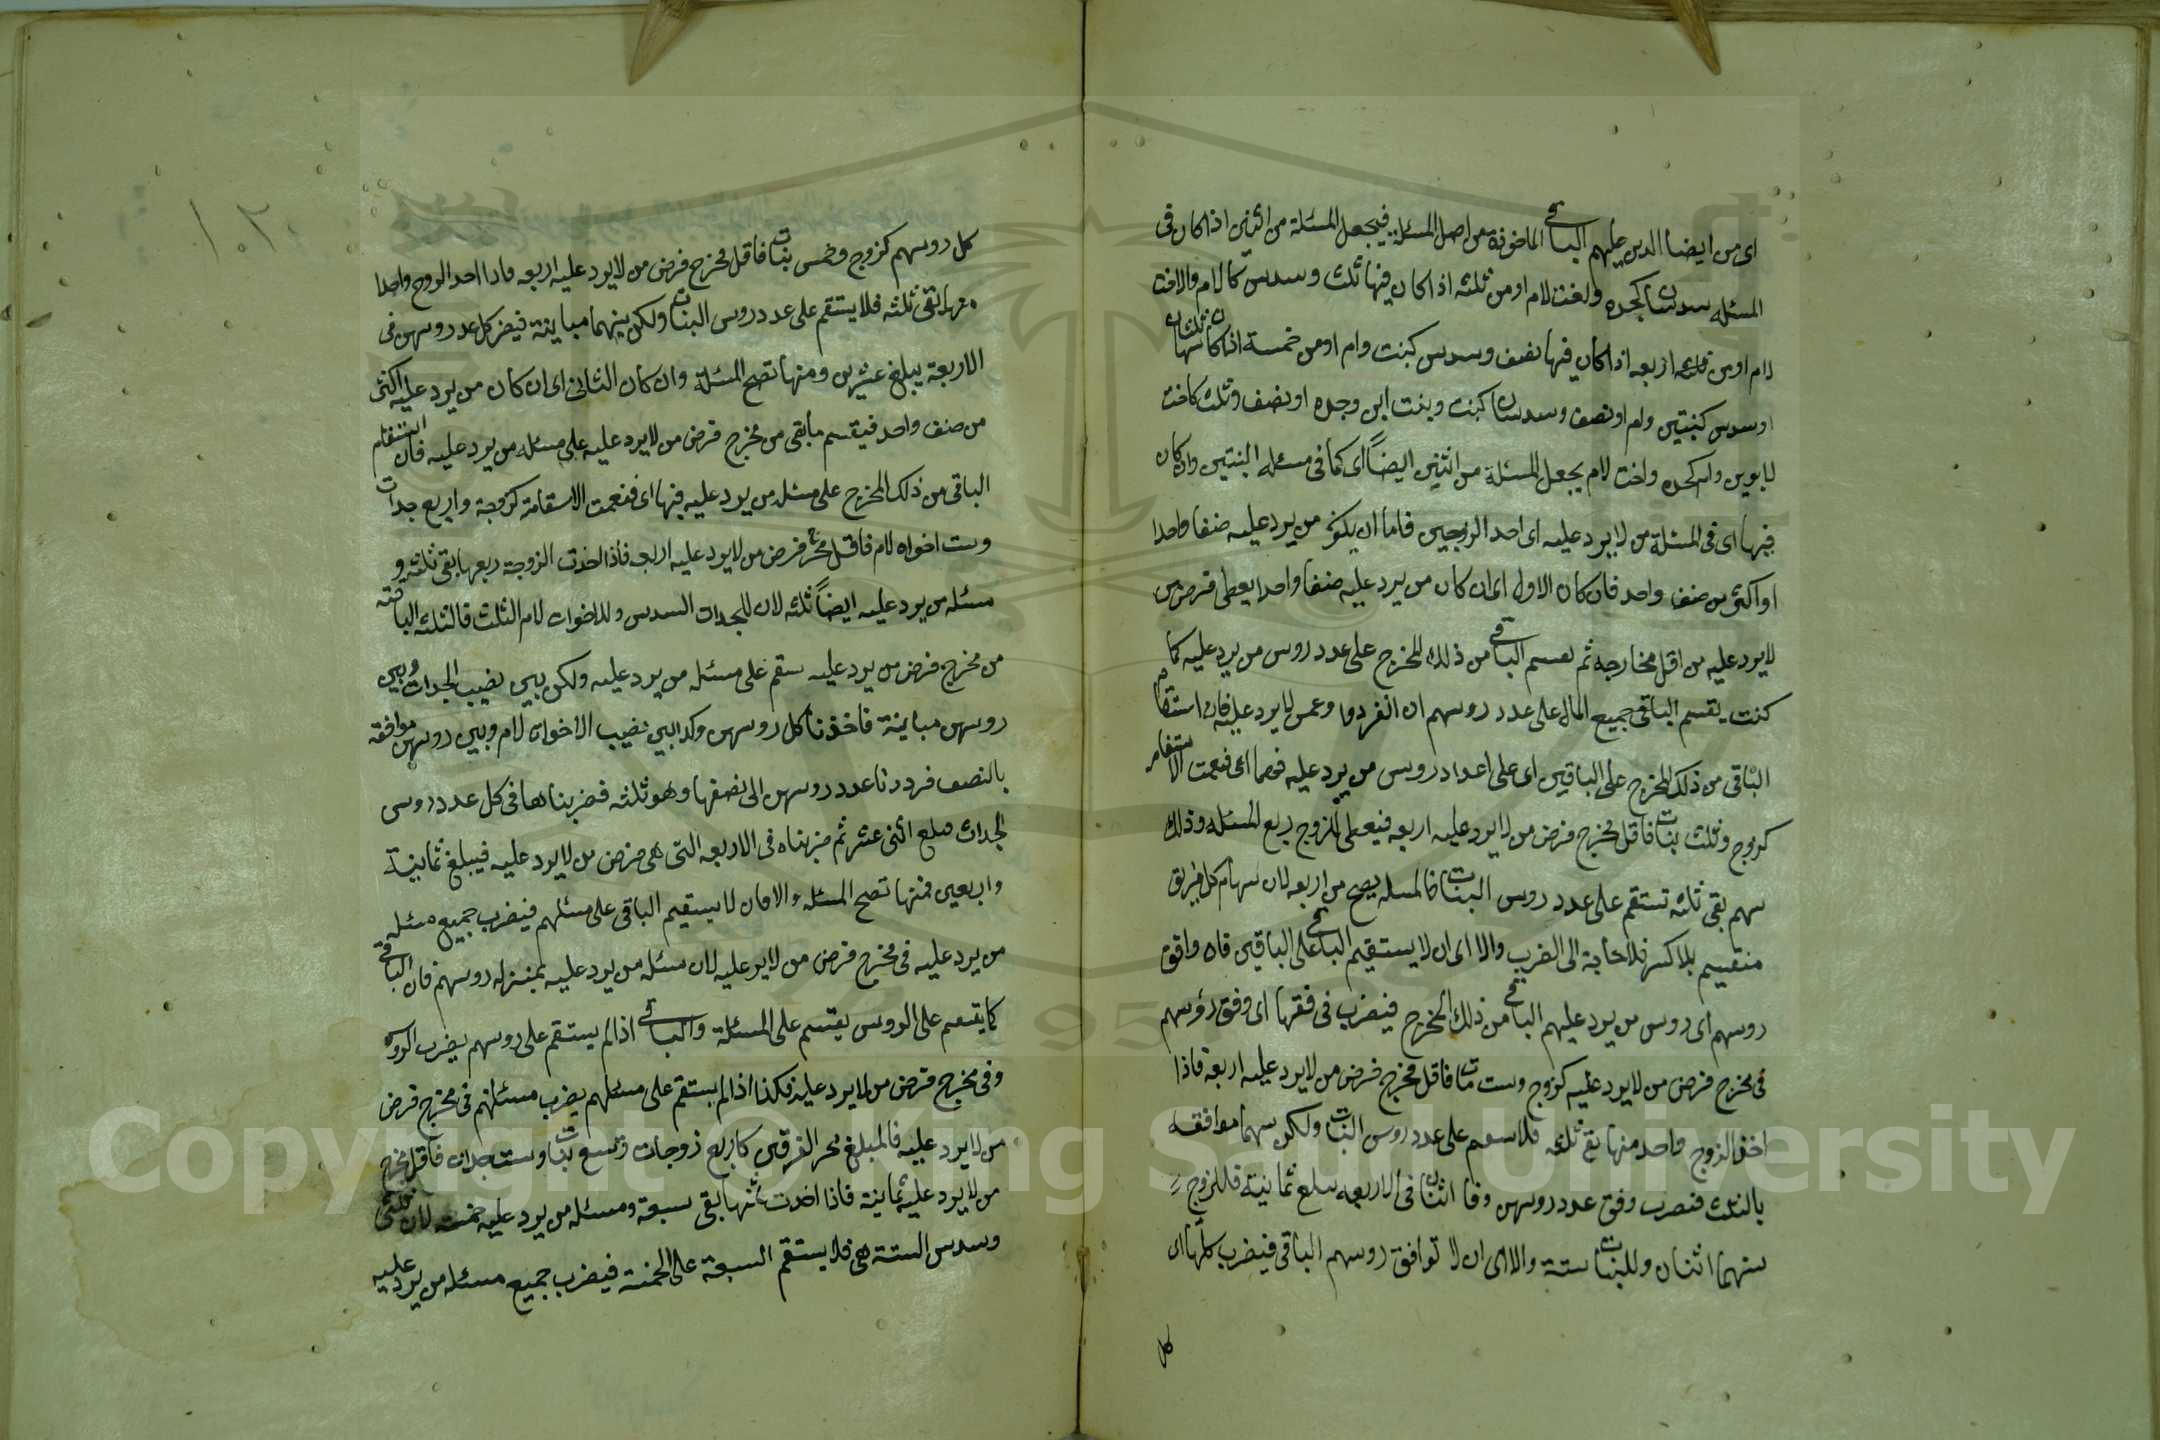 اى من ايضا الذين عليهم الباقى الماخوذة من اصل المسئلة فيجعل المسئلة من اثنين اذا كان فى
المسئله سدسان كجده واخت لام او من ثلثه اذا كان فيها ثلث وسدس كالام والاخت
لام او من اربعه اذا كان فيها نصف وسدس كبنت وام او من خمسة اذا كان فيها ثلثان
او سدس كبنتين وام او نصف وسدسان كبنت وبنت ابن وجده او نصف وثلث كاخت
لابوين وام كجده واخت لام يجعل المسئلة من اثنين ايضاً اى كما فى مسئله البنتين واذا كان
فيها اى فى المسئلة من لا يرد عليه اى احد الزوجين فاما ان يكون من يرد عليه صنفا واحدا
او اكثر من صنف واحد فان كان الاول اى ان كان من يرد عليه صنفا واحدا يعطى فرض من
لا يرد عليه من اقل مخارجه ثم يقسم الباقى من ذلك المخرج على عدد روس من يرد عليه كما
كنت يقسم الباقى جميع المال على عدد روسهم ان انفردوا وعمن لا يرد عليه فان استقام
الباقى من ذلك المخرج على الباقين اى على اعداد روس من يرد عليه فيها اى فنعمت الاستقامه
كزوج وثلث بنات فاقل مخرج فرض من لا يرد عليه اربعه فيعطى للزوج ربع المسئله وذلك
سهم بقى ثلثه تستقم على عدد روس البنات فالمسله يصح من اربعه لان سهام كل فريق
منقسم بلا كسر فلا حاجة الى الضرب والا اى ان لا يستقيم الباقى على الباقين فان وافق
روسهم اى روس من يرد عليهم الباقى من ذلك المخرج فيضرب فى فقها اى وفق رؤسهم
فى مخرج فرض من لا يرد عليه كزوج وست بنات فاقل مخرج فرض من لا يرد عليه اربعة فاذا
اخذ الزوج واحد منها بقى ثلثه فلا يستقم على عدد روس البنات ولكن بينهما موافقه
بالثلث فيضرب وفق عدد روسهن وفا اثنان فى الاربعه يبلغ ثمانية فللزوج
سهما اثنان وللبنات ستة والا اى ان لا توافق روسهم الباقى فيضرب كلها اى
كل
١٠٢
كل روسهم كزوج وخمس بنات فاقل مخرج فرض من لا يرد عليه اربعه فاذا اخذ الزوج واحدا
منها بقى ثلثه فلا يستقم على عدد روس البنات ولكن بينهما مباينة فيضرب كل عدد روسهن فى
الاربعة يبلغ عشرين ومنها تصح المسئلة وان كان الثانى اى ان كان من يرد عليه اكثر
من صنف واحد فيقسم ما بقى من مخرج فرض من لا يرد عليه على مسئله من يرد عليه فان استقام
الباقى من ذلك المخرج على مسئلة من يرد عليه فيها اى فنعمت الاستقامة كزوجة واربع جدات
وست اخوات لام فاقل مخرج فرض من لا يرد عليه اربعه فاذا اخذت الزوجة ربعها بقى ثلثه و
مسئله من يرد عليه ايضاً ثلثه لان للجدات السدس وللاخوات لام الثلث فالثلثه الباقيه
من مخرج فرض من يرد عليه ستقم على مسئله من يرد عليه ولكن بين نصيب الجدات وبين
روسهن مباينة فاخذنا كل روسهن وكذا بين نصيب الاخوات لام وبين روسهن موافقه
بالنصف فرددنا عدد روسهن الى نصفها وهو ثلثه فضربناها فى كل عدد روس
الجدات مبلغ اثنى عشر ثم ضربناه فى الاربعه التى هى فرض من لا يرد عليه فيبلغ ثمانية
واربعين فمنها تصح المسئله والا فان لا يستقيم الباقى على مسئلهم فيضرب جميع مسئله
من يرد عليه فى مخرج فرض من لا يرد عليه لان مسئله من يرد عليه بمنزله روسهم فان الباقى
كما يقسم على الروس يقتسم على المسئلة والباقى اذا لم يستقم على روسهم يضرب الروس
وفى مخرج فرض من لا يرد عليه فكذا اذا لم يستقم على مسئلهم يضرب مسئلتهم فى مخرج فرض
من لا يرد عليه فالمبلغ مخرج الفرقين كاربع زوجات وتسع بنات وست جدات فاقل مخرج
من لا يرد عليه ثمانية فاذا اخذت ثمنها بقى سبعة ومسئله من يرد عليه خمسه لان ثلثى
وسدس الستة هى فلا يستقم السبعة على الخمسة فيضرب جميع مسئله من يرد عليه
Copyright © King Saud University